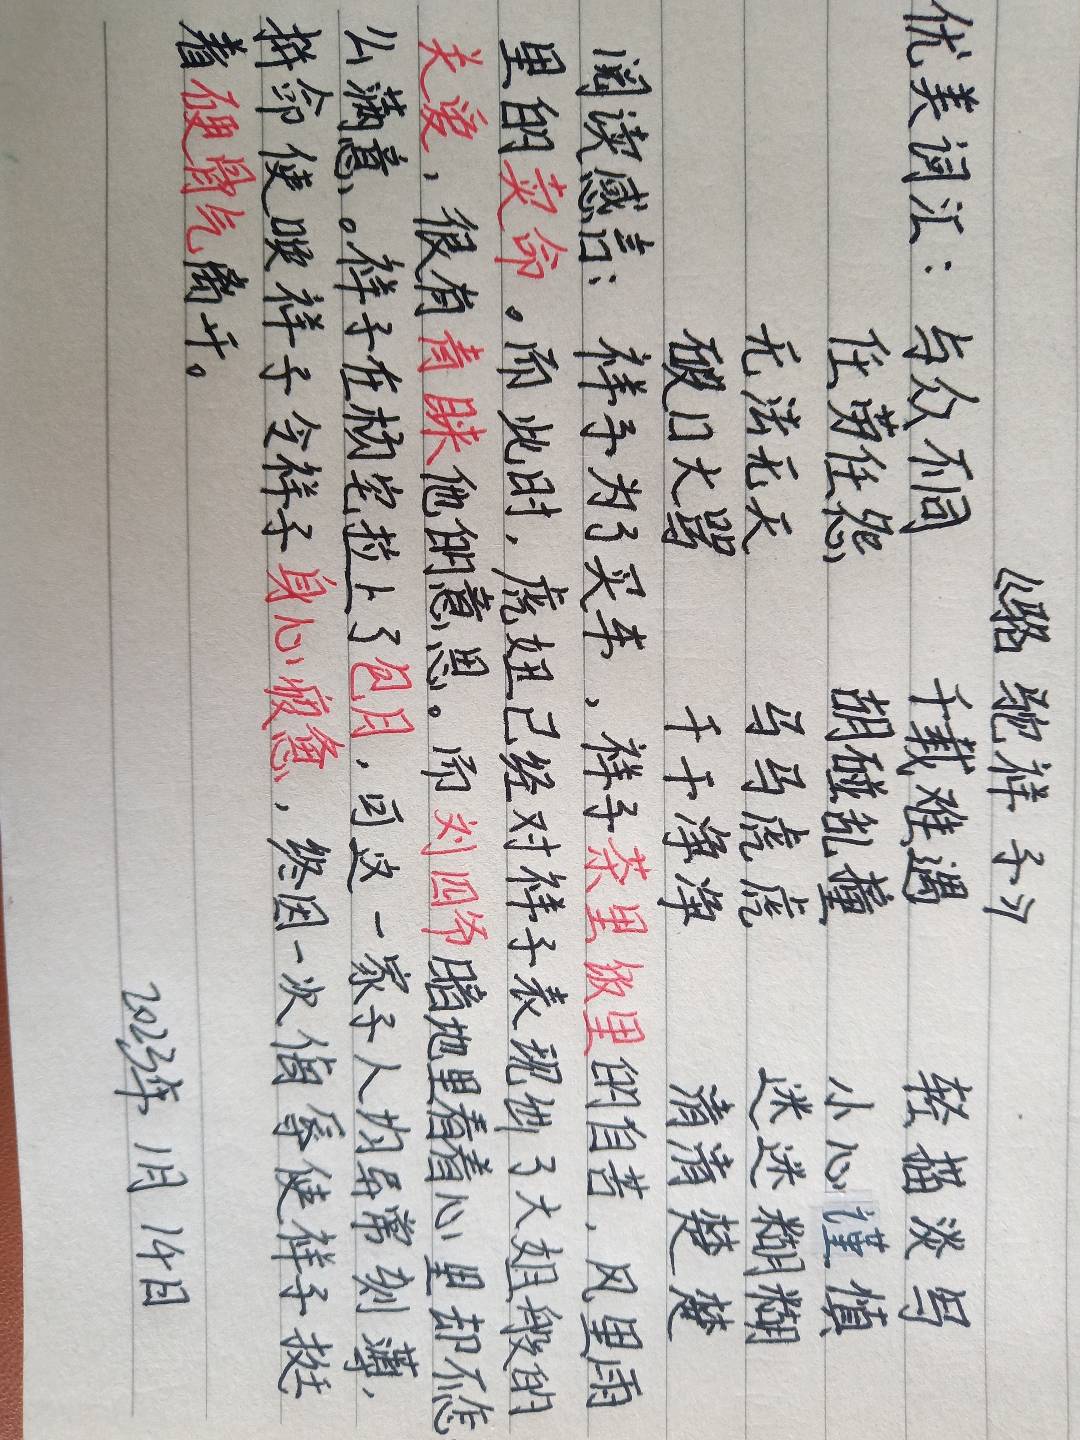 《骆驼祥子》
优美词汇：与众不同 千载难遇 轻描淡写
任劳任怨 胡碰乱撞 小心谨慎
无法无天 马马虎虎 迷迷糊糊
破口大骂 干干净净 清清楚楚
阅读感言：祥子为了买车，祥子茶里饭里的自苦，风里雨
里的卖命。而此时，虎妞已经对祥子表现出了大姐般的
关爱，很有青睐他的意思。而刘四爷暗地里看着心里却不怎
么满意。祥子在杨宅拉上了包月，可这一家子人均异常刻薄，
拼命使唤祥子令祥子身心疲惫，终因一次侮辱使祥子挺
着硬骨气离开。
2023年1月14日